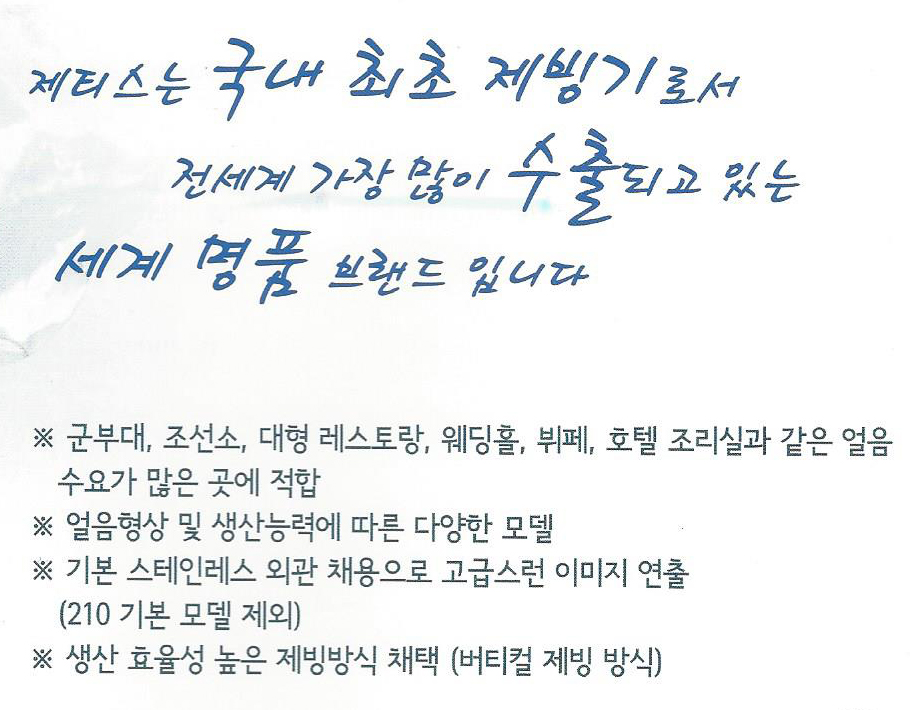 제티스는 국내 최초 제빙기로서
전세계 가장 많이 수출되고 있는
세계 명품 브랜드 입니다
※ 군부대, 조선소, 대형 레스토랑, 웨딩홀, 뷔페, 호텔 조리실과 같은 얼음
수요가 많은 곳에 적합
※ 얼음형상 및 생산능력에 따른 다양한 모델
※ 기본 스테인레스 외관 채용으로 고급스런 이미지 연출
(210 기본 모델 제외)
※ 생산 효율성 높은 제빙방식 채택 (버티컬 제빙 방식)